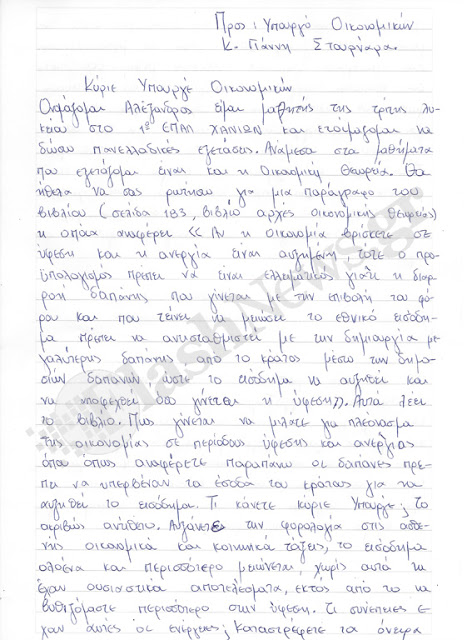 Προς: Υπουργό Οικονομικών
κ. Γιάννη Στουρνάρα.
Κύριε Υπουργέ Οικονομικών
Ονομάζομαι Αλέξανδρος είμαι μαθητής της τρίτης λυ-
κείου στο 1ο ΕΠΑΛ ΧΑΝΙΩΝ και ετοιμάζομαι να
δώσω πανελλαδικές εξετάσεις. Ανάμεσα στα μαθήματα
που εξετάζομαι είναι και η Οικονομική Θεωρία. Θα
ήθελα να σας ρωτήσω για μια παράγραφο του
βιβλίου (σελίδα 183, βιβλίο αρχές οικονομικής θεωρίας)
η οποία αναφέρει << Αν η οικονομία βρίσκετε σε
ύφεση και η ανεργία είναι αυξημένη, τότε ο προ-
ϋπολογισμός πρέπει να είναι ελλειματικός γιατί η διαρ-
ροή δαπάνης που γίνεται με την επιβολή του φό-
ρου και που τείνει να μειώσει το εθνικό εισόδη-
μα πρέπει να αντισταθμιστεί με την δημιουργία με-
γαλύτερης δαπάνης από το κράτος μέσα των δημο-
σίων δαπανών, ώστε το εισόδημα να αυξηθεί και
να αποφευχθεί όσο γίνεται η ύφεση>>. Αυτά λέει
το βιβλίο. Πως γίνεται να μιλάτε για πλεόνασμα
της οικονομίας σε περίοδους ύφεσης και ανεργίας
όπου όπως αναφέρετε παραπάνω οι δαπάνες πρέ-
πει να υπερβαίνουν τα έσοδα του κράτους για να
αυξηθεί το εισόδημα. Τι κάνετε κύριε Υπουργέ; Το
ακριβώς αντίθετο. Αυξάνετε την φορολογία στις ασθε-
νής οικονομικά και κοινωνικά τάξεις, το εισόδημα
ολοένα και περισσότερο μειώνεται, χωρίς αυτά να
έχουν ουσιαστικά αποτελέσματα, εκτός από το να
βυθιζόμαστε περισσότερο στην ύφεση. Τι συνέπειες έ-
χουν αυτές οι ενέργειες; Καταστρέφετε τα όνειρα
flashnews.gr